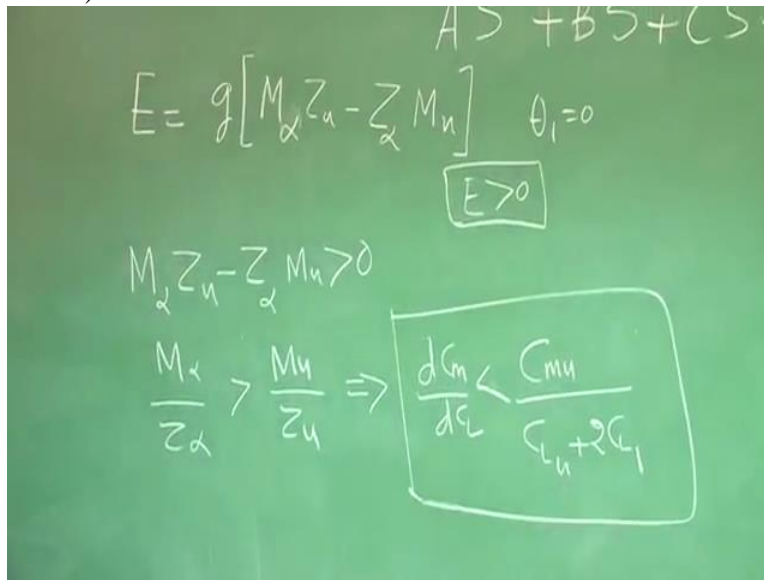 AS + BS + CS
E = g[M_α Z_u - Z_α M_u]   θ_1 = 0
E > 0
M_α Z_u - Z_α M_u > 0
M_α / Z_α > M_u / Z_u ⇒ dC_m / dC_L < C_mu / C_Lu + 2C_L1